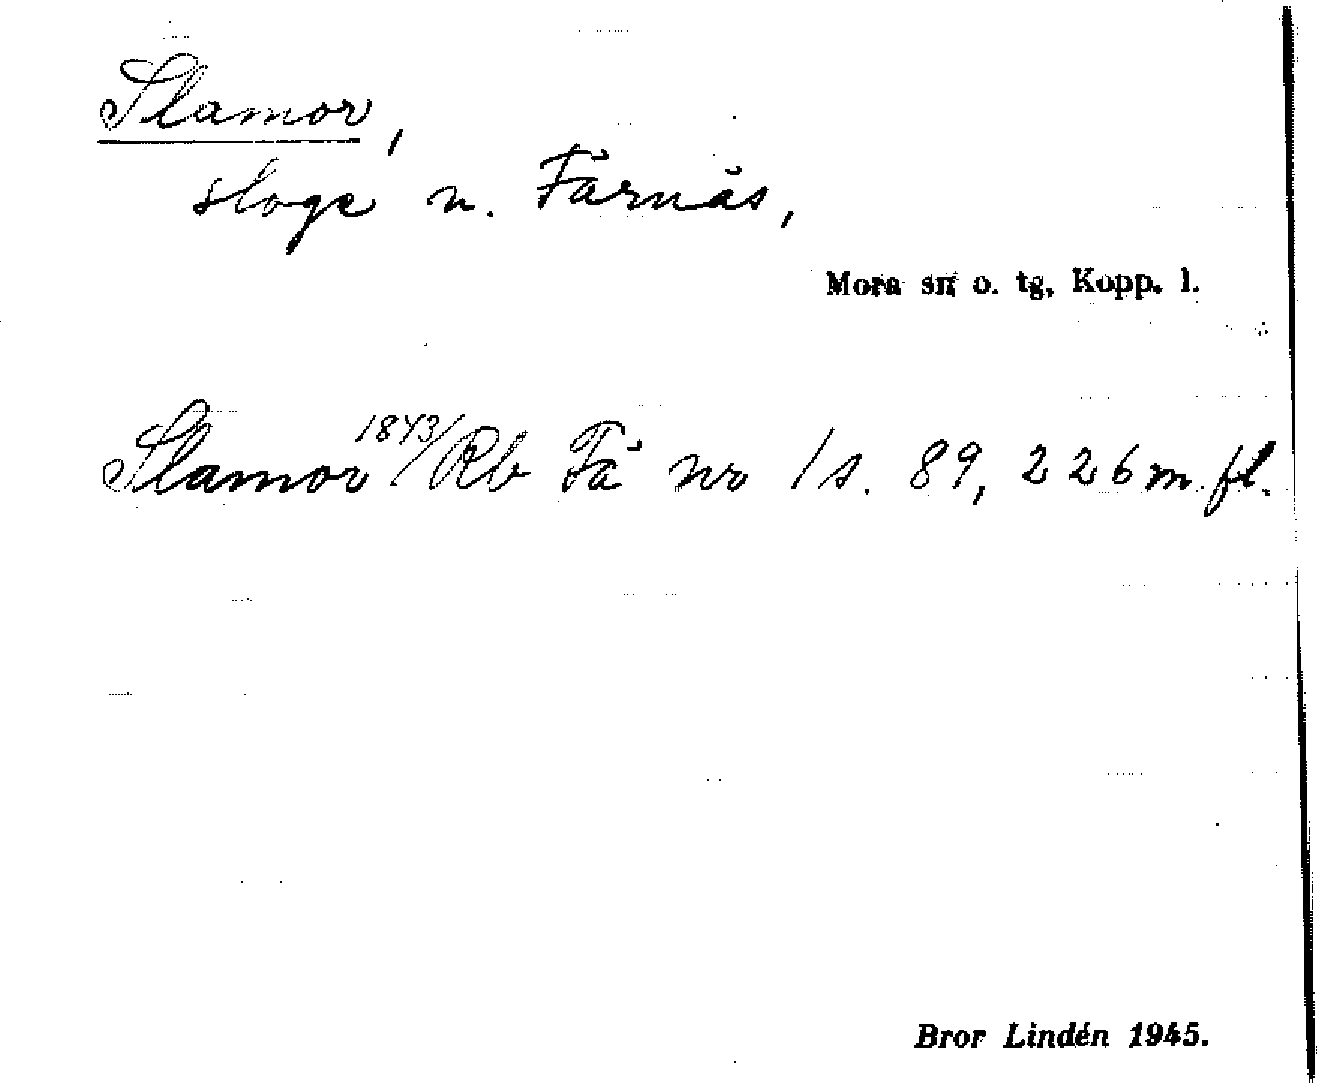 Slamor,
sloge n. Färnäs,
Mora sn o. tg, Kopp. l.
Slamor 1843/Rb Fä nr 1 s. 89, 226 m. fl.
Bror Lindén 1945.